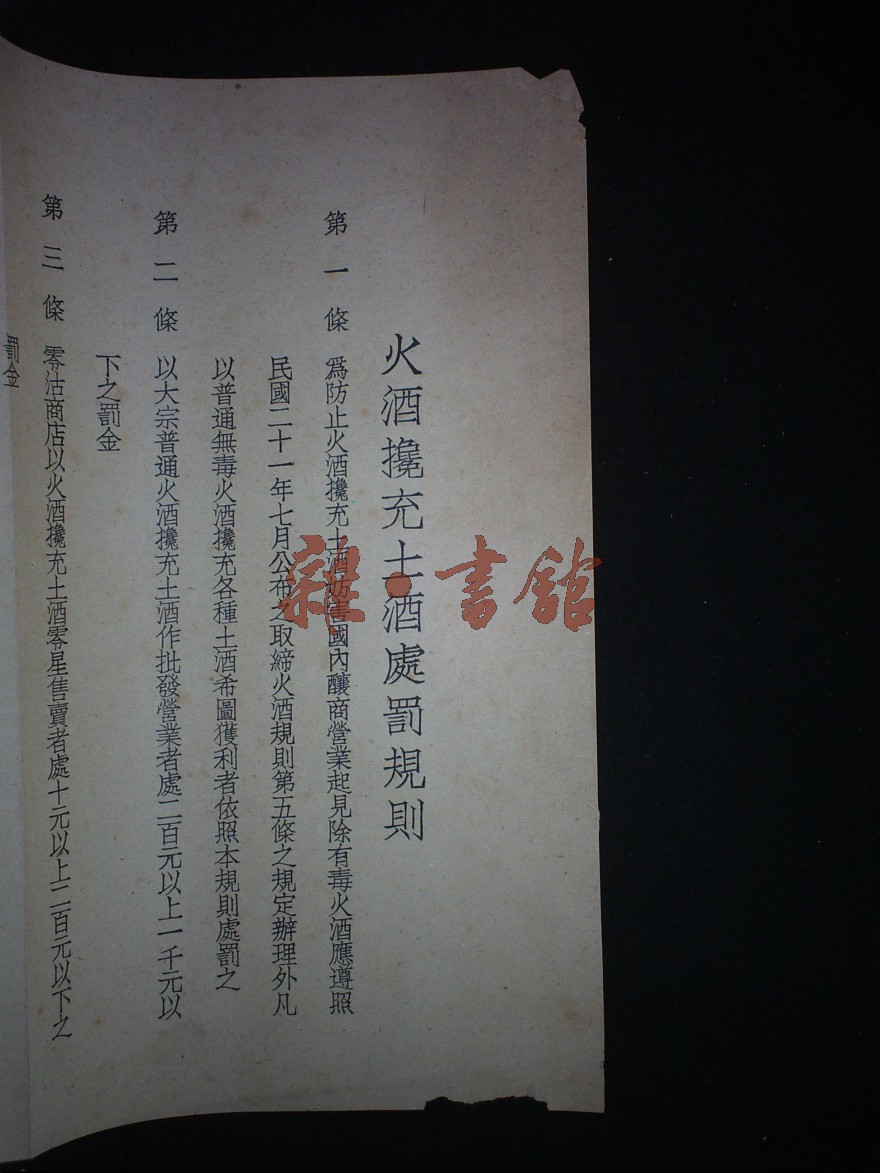 火酒攙充土酒處罰規則
第一條 爲防止火酒攙充土酒妨害國內釀商營業起見除有毒火酒應遵照
民國二十一年七月公布之取締火酒規則第五條之規定辦理外凡
以普通無毒火酒攙充各種土酒希圖獲利者依照本規則處罰之
第二條 以大宗普通火酒攙充土酒作批發營業者處二百元以上一千元以
下之罰金
第三條 零沽商店以火酒攙充土酒零星售賣者處十元以上二百元以下之
罰金
雜·書館